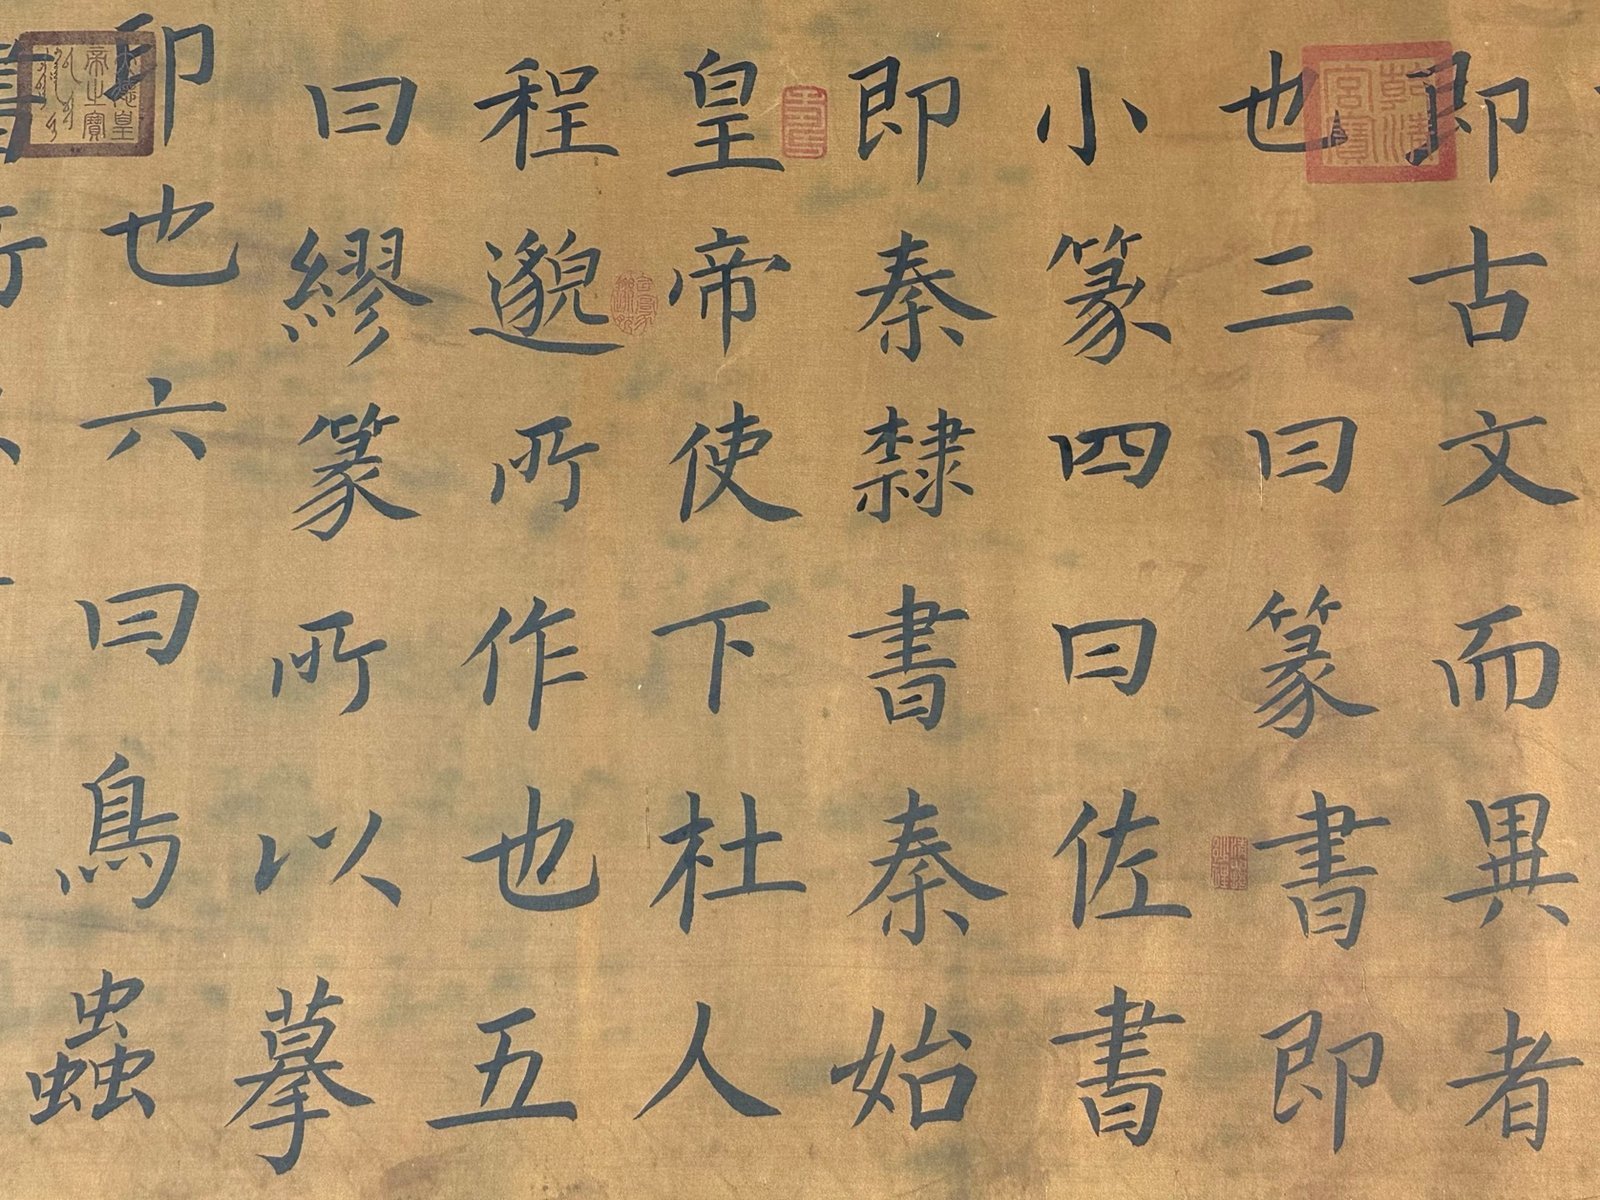 即古文而異者
也三曰篆書即
小篆四曰佐書
即秦隸書秦始
皇帝使下杜人
程邈所作也五
曰繆篆所以摹
印也六曰鳥蟲
乾清宮寶